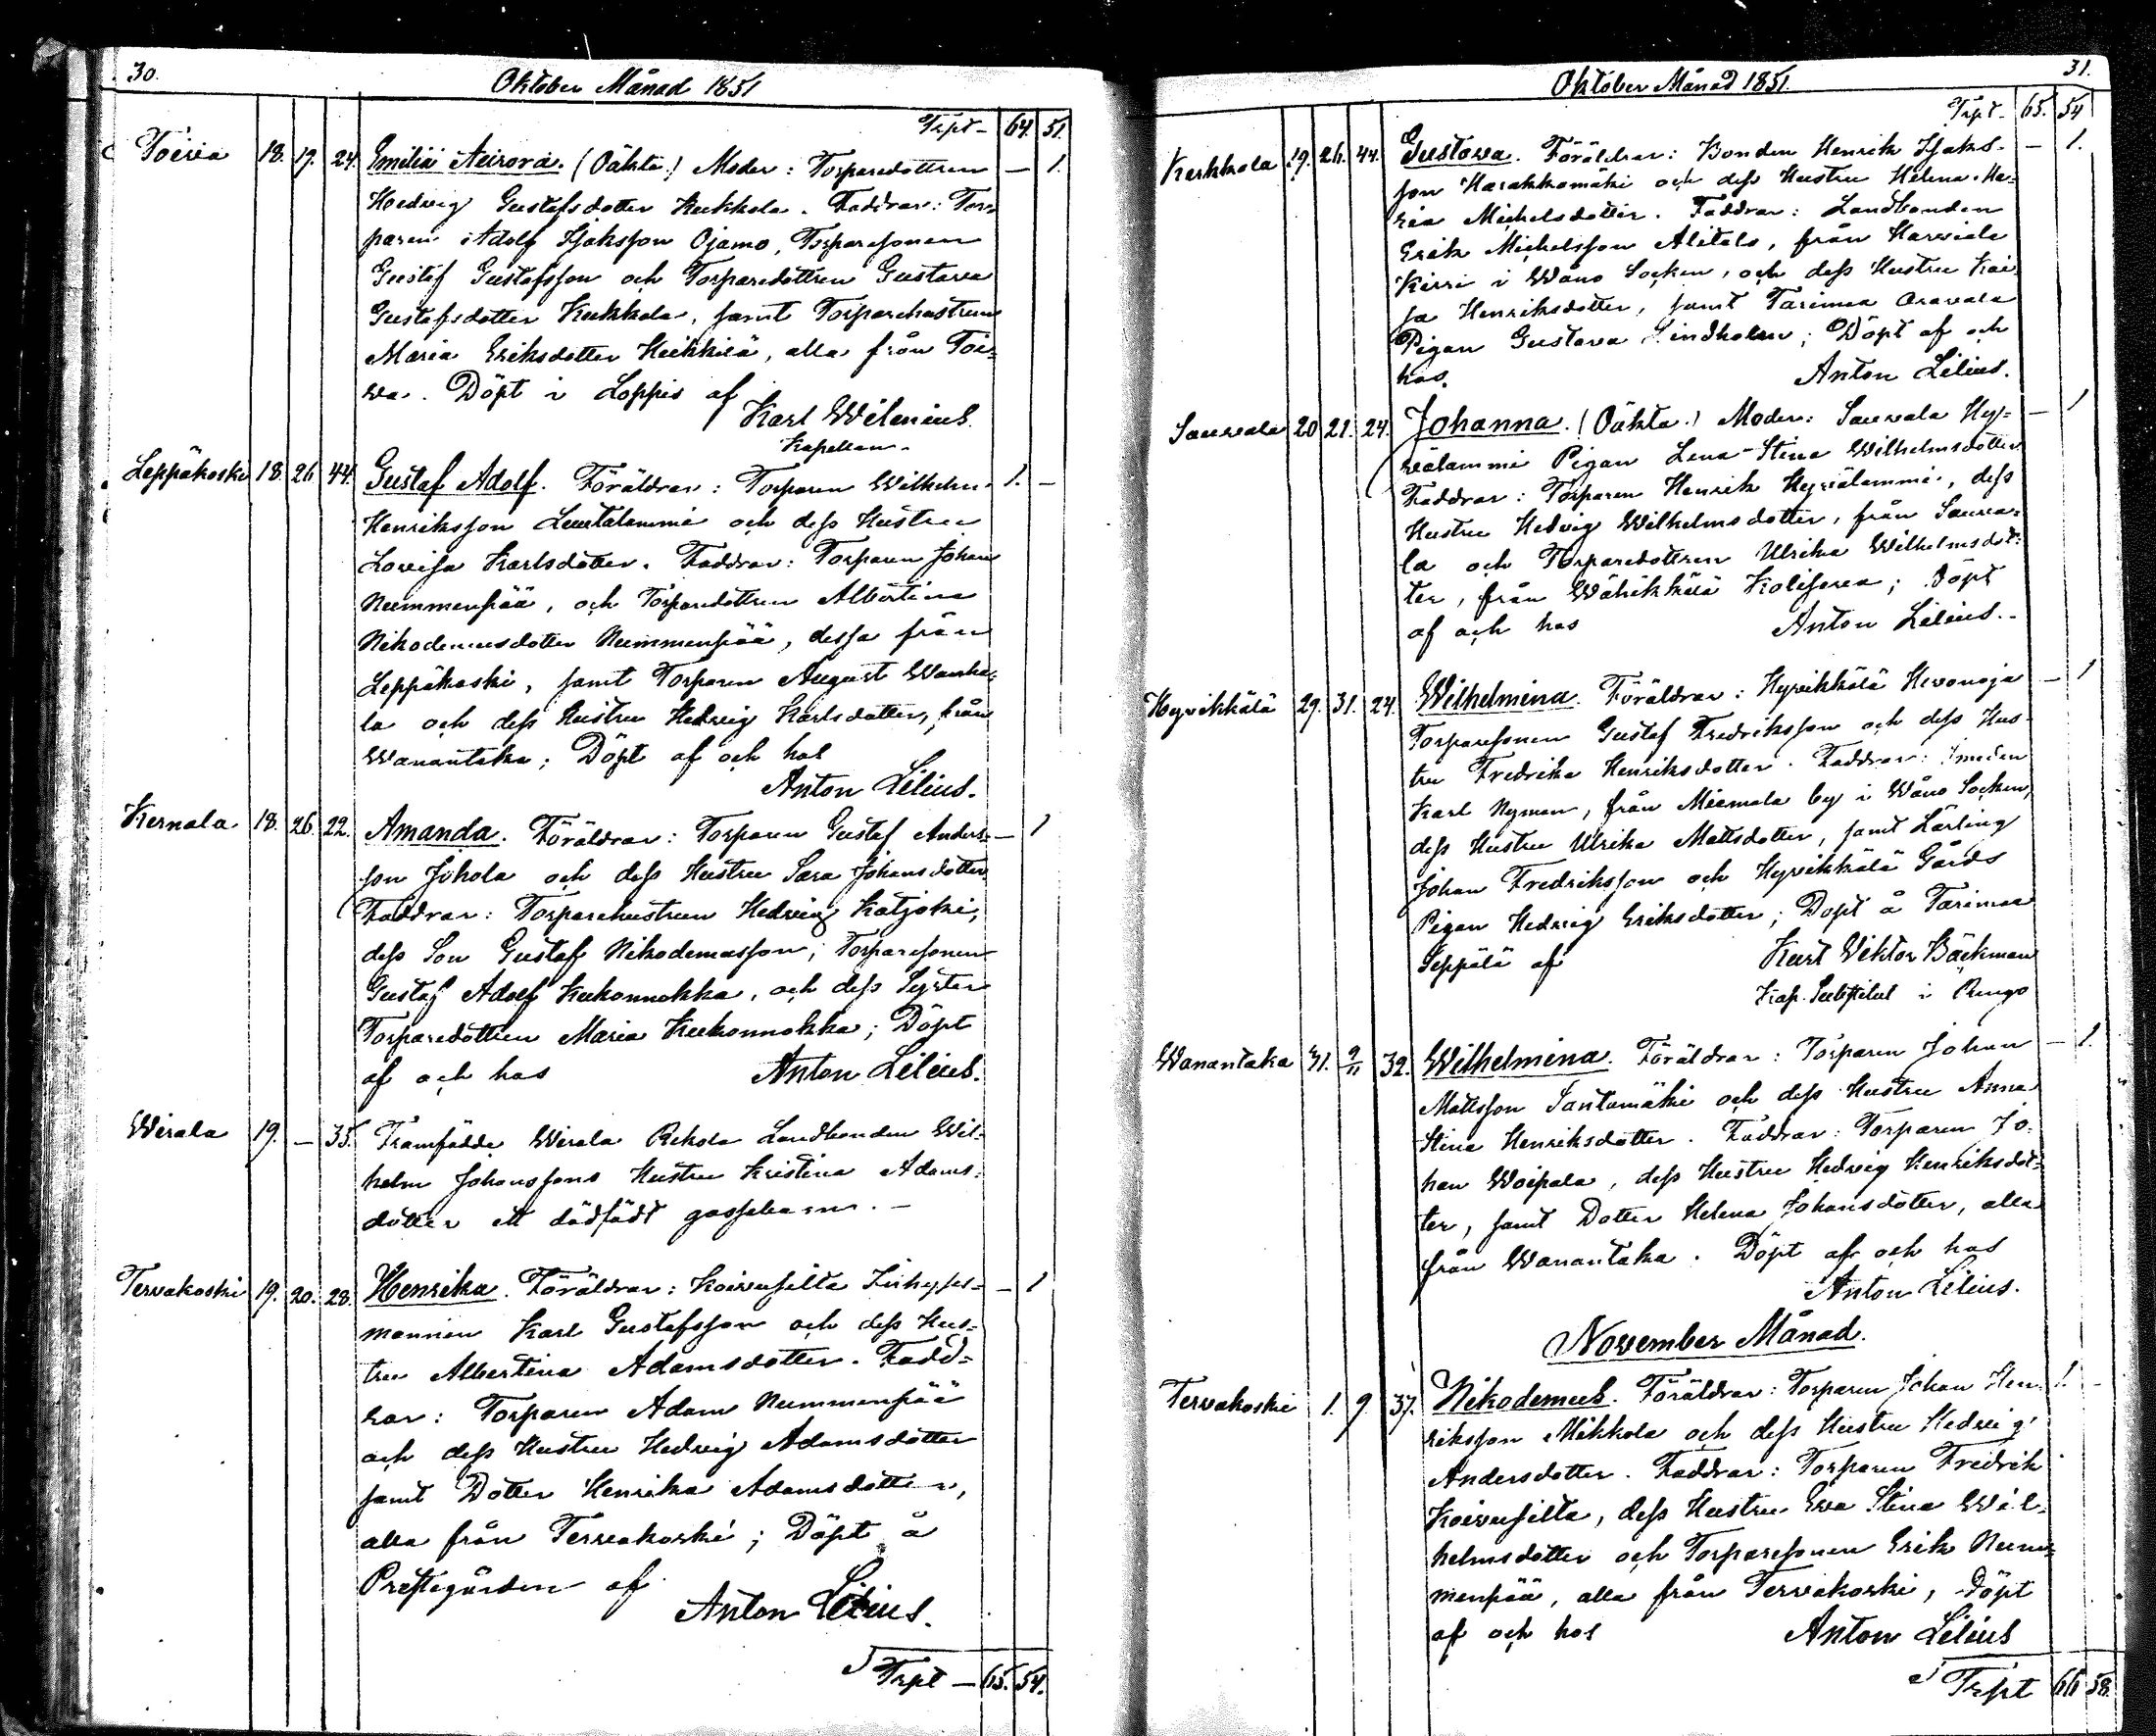 30.
Oktober Månad 1851
Trpt- 64. 51.
Toivia 18. 19. 24. Emiliä Aurora. (Oäkta.) Moder: Torparedottren — 1.
Hedvig Gustafsdotter Kukkola. Faddrar: Tor-
paren Adolf Isaksson Ojamo, Torparesonen
Gustaf Gustafsson och Torparedottren Gustava
Gustafsdotter Kukkola, samt Torparehustrun
Maria Eriksdotter Heikkilä, alla från Toi-
va. Döpt i Loppis af
Karl Wilenius.
Kapellan.
Leppäkoski 18. 26 44. Gustaf Adolf. Föräldrar: Torparen Wilhelm 1. -
Henriksson Luutalammi och dess Hustru
Lovisa Karlsdotter. Faddrar: Torparen Johan
Nummenpää, och Torparedottren Albertina
Nikodemusdotter Nummenpää, dessa från
Leppäkoski, samt Torparen August Wanha-
la och dess Hustru Hedvig Karlsdotter, från
Wanantaka; Döpt af och hos
Anton Lilius.
Kernala 18. 26. 22. Amanda. Föräldrar: Torparen Gustaf Anders- — 1
son Johola och dess Hustru Sara Johansdotter
Faddrar: Torparehustrun Hedvig Katjoki,
dess Son Gustaf Nikodemusson, Torparesonen
Gustaf Adolf Kukonnokka, och dess Syster
Torparedottren Maria Kukonnokka; Döpt
af och hos Anton Lilius.
Wirala 19. — 35. Framfödde Wirala Rekola Landbonden Wil-
helm Johanssons Hustru Kristina Adams-
dotter ett dödfödt gossebarn. —
Tervakoski 19. 20. 28. Henrika. Föräldrar: Koivusilta Inhyses- — 1
mannen Karl Gustafsson och dess Hus-
tru Albertina Adamsdotter. Fadd-
rar: Torparen Adam Nummenpää
och dess Hustru Hedvig Adamsdotter
samt Dotter Henrika Adamsdotter,
alla från Tervakoski; Döpt å
Prestegården af
Anton Lilius.
Trpt — 65. 54.
31.
Oktober Månad 1851.
Trpt- 65. 54
Karkkola 19. 26. 44. Gustava. Föräldrar: Bonden Henrik Isaks- — 1.
son Harakkamäki och dess Hustru Helena Ma-
ria Michelsdotter. Faddrar: Landbonden
Erik Michelsson Alitalo, från Harviala
Kirri i Wåno Socken, och dess Hustru Kai-
sa Henriksdotter, samt Tarinmaa Oravala
Pigan Gustava Lindholm; Döpt af och
hos. Anton Lilius.
Sauvala 20 21. 24. Johanna. (Oäkta.) Moder: Sauvala Hy- — 1
viälammi Pigan Lena-Stina Wilhelmsdotter
Faddrar: Torparen Henrik Hyviälammi, dess
Hustru Hedvig Wilhelmsdotter, från Sauva-
la och Torparedottren Ulrika Wilhelmsdot-
ter, från Wähikkälä Kolisova; Döpt
af och hos Anton Lilius.
Hyvikkälä 29. 31. 24. Wilhelmina. Föräldrar: Hyvikkälä Hevonoja — 1
Torparesonen Gustaf Fredriksson och dess Hus-
tru Fredrika Henriksdotter. Faddrar: Smeden
Karl Nyman, från Miemala by i Wåno Socken,
dess Hustru Ulrika Mattsdotter, samt Lärling
Johan Fredriksson och Hyvikkälä Gårds
Pigan Hedvig Eriksdotter; Döpt å Tarinmaa
Seppälä af Kurt Viktor Bäckman
Kap. Substitut i Rengo
Wanantaka 31. 9/11 32. Wilhelmina. Föräldrar: Torparen Johan — 1.
Mattsson Santamäki och dess Hustru Anna
Stina Henriksdotter. Faddrar: Torparen Jo-
han Woipala, dess Hustru Hedvig Henriksdot-
ter, samt Dotter Helena Johansdotter, alla
från Wanantaka. Döpt af och hos
Anton Lilius.
November Månad.
Tervakoski 1. 9. 37. Nikodemus. Föräldrar: Torparen Johan Hen- 1. -
riksson Mikkola och dess Hustru Hedvig
Andersdotter. Faddrar: Torparen Fredrik
Koivusilta, dess Hustru Eva Stina Wil-
helmsdotter och Torparesonen Erik Num-
menpää, alla från Tervakoski, Döpt
af och hos Anton Lilius
Trpt 66 58.